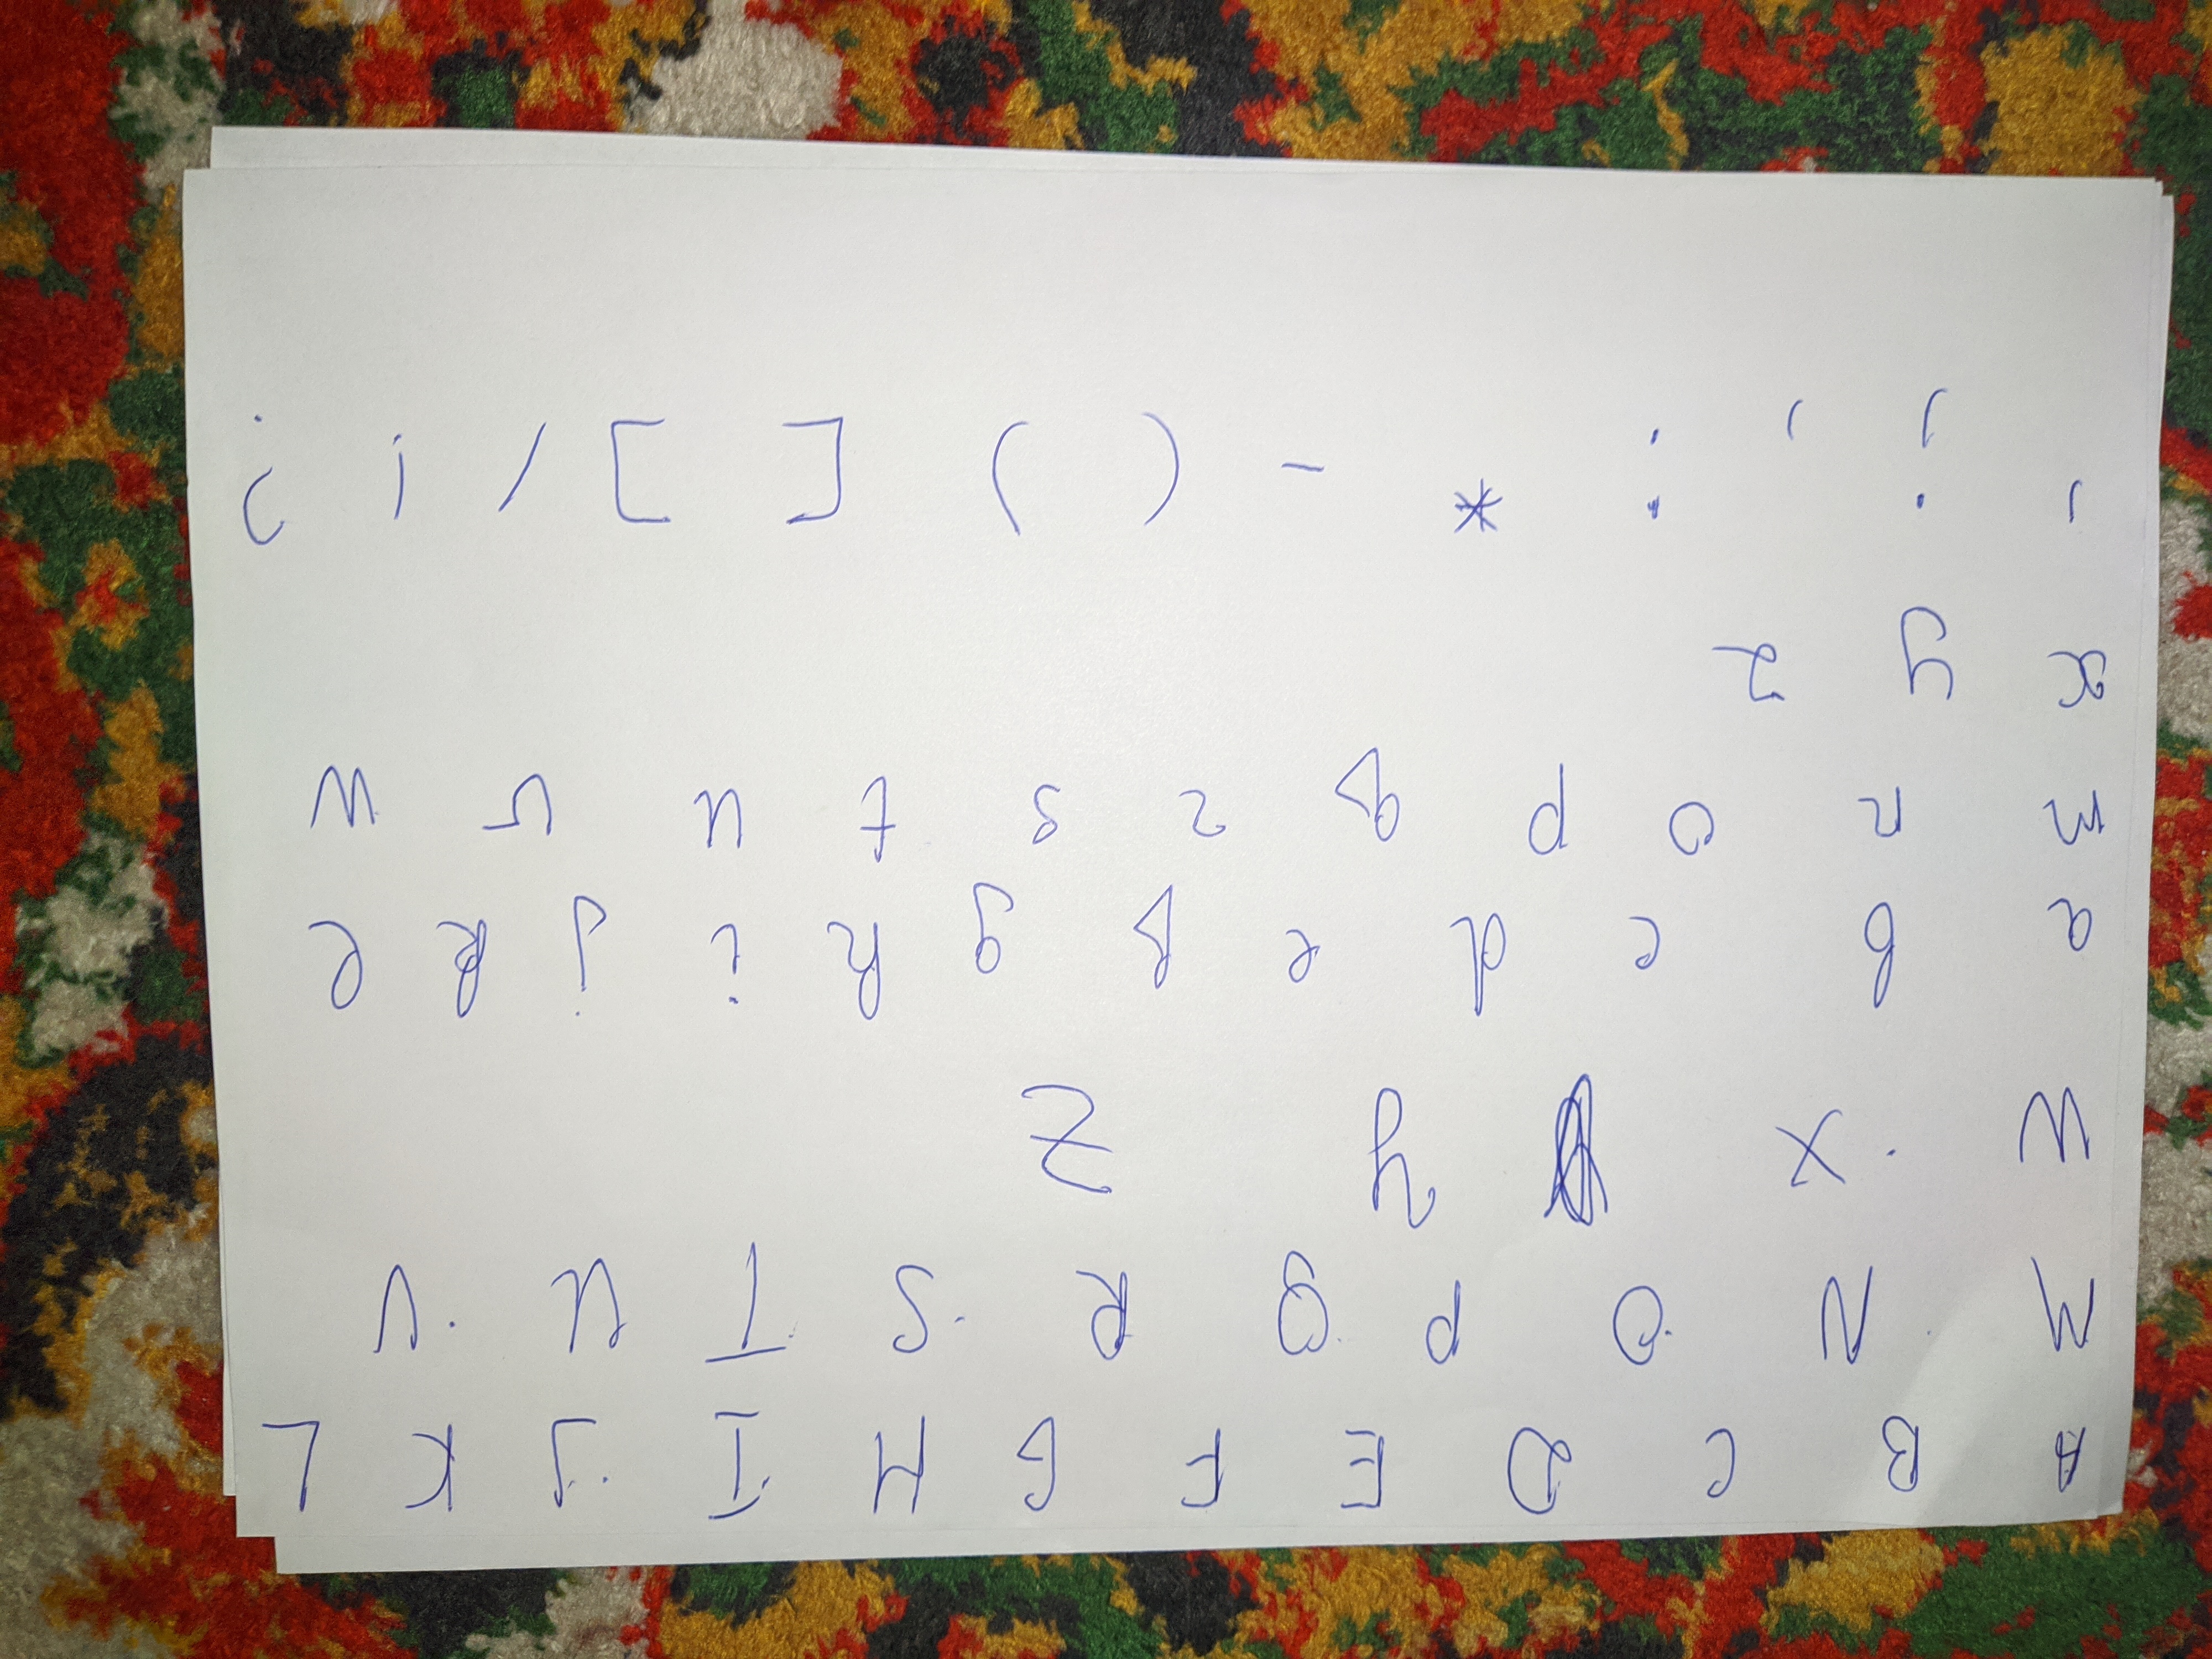 A B C D E F G H I J K L
M N O P Q R S T U V
W X Y Z
a b c d e f g h i j k l
m n o p q r s t u v w
x y z
' ; , : * - ( ) [ ] / ! ?